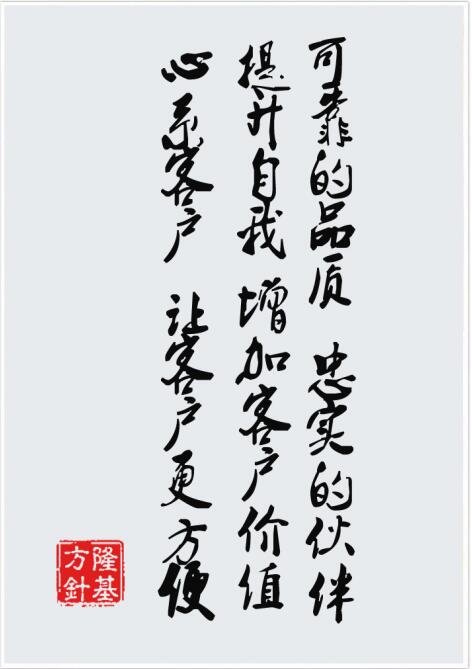 可靠的品质 忠实的伙伴
提升自我 增加客户价值
心系客户 让客户更方便
隆基
方針